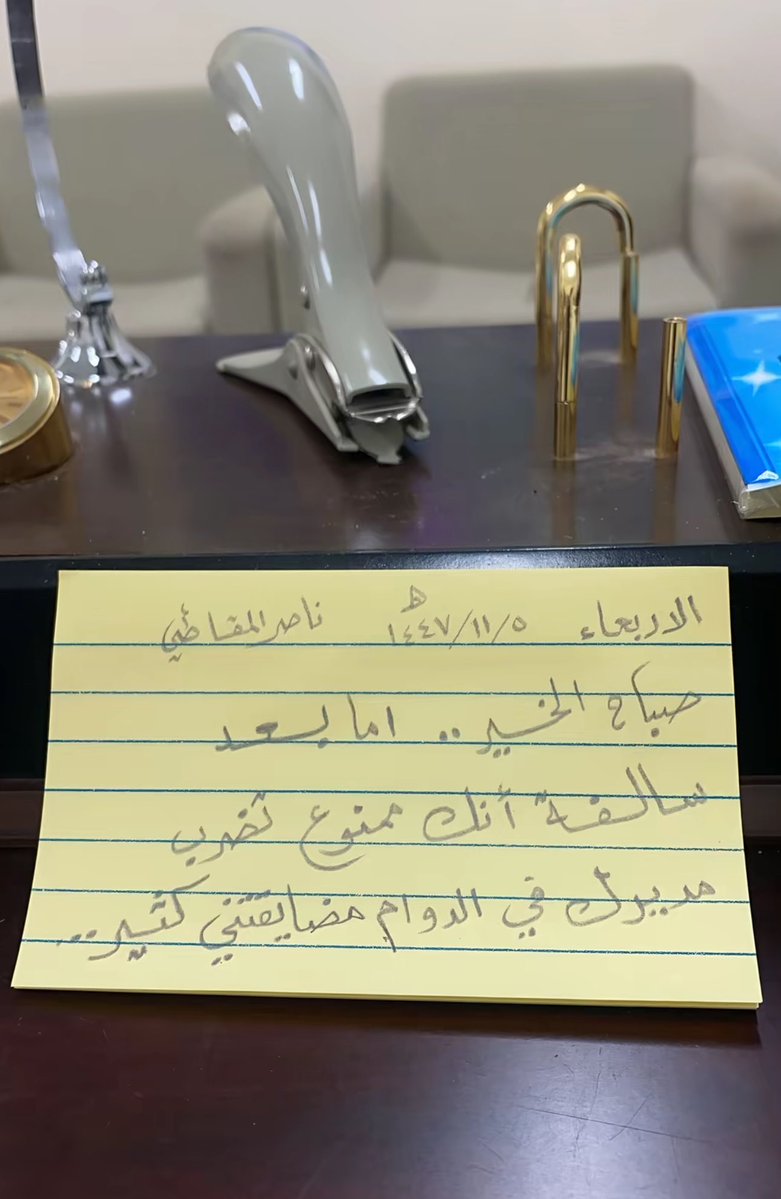 الاربعاء ١٤٤٧/١١/٥ هـ ناصر المقاطي
صباح الخير .. اما بعد
سالفة أنك ممنوع تضرب
مديرك في الدوام مضايقتني كثير...